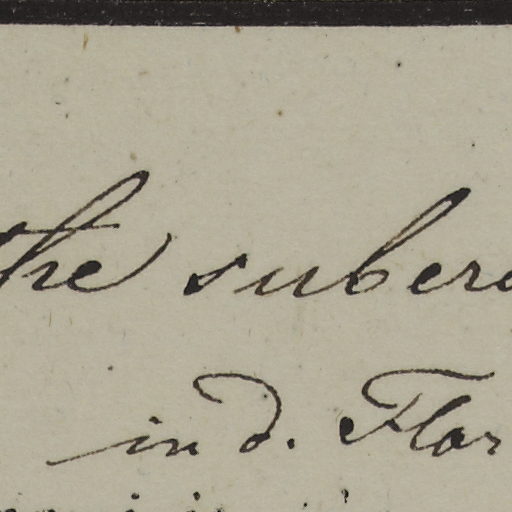 the subero
in d. Flor